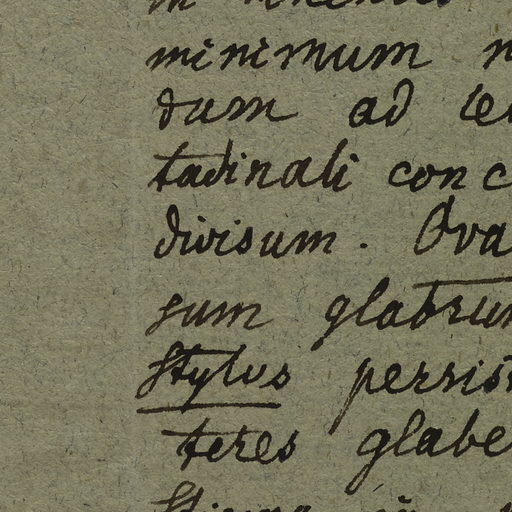 minimum
dum ad
tudinali con c
divisum. Ova
sum glabrum
Stylus persis
teres glabe